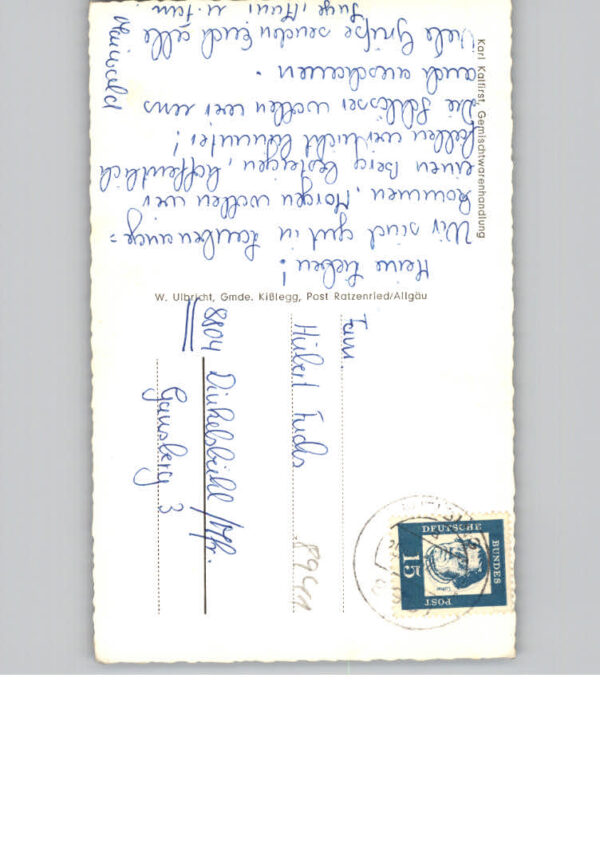 Meine Lieben!
Wir sind gut in angekommen. Morgen wollen wir
einen Berg besteigen, hoffentlich
fallen wir nicht herunter!
Die Schlösser wollen wir uns
auch anschauen.
Viele Grüße senden Euch alle
u. Fam.
Karl Kalfirst, Gemischtwarenhandlung
W. Ulbricht, Gmde. Kißlegg, Post Ratzenried/Allgäu
Fam.
Hubert Fuchs
8804 Dinkelsbühl /Mfr.
Gaisberg 3
8941
DEUTSCHE
BUNDES
POST
15